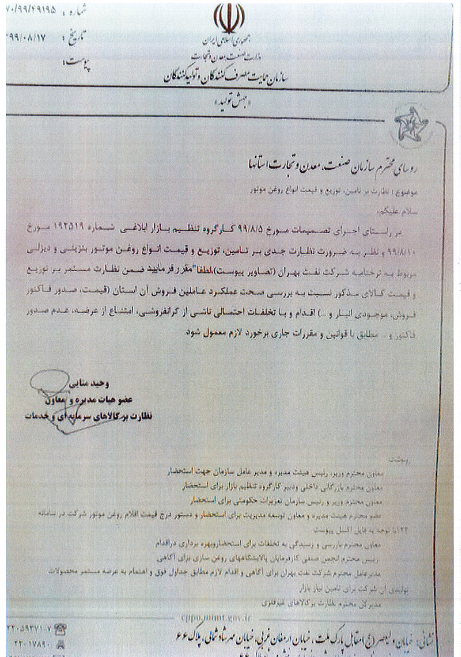 شماره : ۷۰/۹۹/۲۹۱۹۵
تاریخ : ۹۹/۰۸/۱۷
پیوست:
جمهوری اسلامی ایران
وزارت صنعت، معدن و تجارت
سازمان حمایت مصرف کنندگان و تولیدکنندگان
«جهش تولید»
روسای محترم سازمان صنعت، معدن و تجارت استانها
موضوع : نظارت بر تامین، توزیع و قیمت انواع روغن موتور
سلام علیکم،
در راستای اجرای تصمیمات مورخ ۹۹/۸/۵ کارگروه تنظیم بازار ابلاغی شماره ۱۹۲۵۱۹ مورخ
۹۹/۸/۱۰ و نظر به ضرورت نظارت جدی بر تامین، توزیع و قیمت انواع روغن موتور بنزینی و دیزلی
مربوط به نرخنامه شرکت نفت بهران (تصاویر پیوست) لطفا" مقرر فرمایید ضمن نظارت مستمر بر توزیع
و قیمت کالای مذکور نسبت به بررسی صحت عملکرد عاملین فروش آن استان (قیمت، صدور فاکتور
فروش، موجودی انبار و ..) اقدام و با تخلفات احتمالی ناشی از گرانفروشی، امتناع از عرضه، عدم صدور
فاکتور و .. مطابق با قوانین و مقررات جاری برخورد لازم معمول شود.
وحید منایی
عضو هیات مدیره و معاون
نظارت بر کالاهای سرمایه ای و خدمات
رونوشت
معاون محترم وزیر، رئیس هیئت مدیره و مدیر عامل سازمان جهت استحضار
معاون محترم بازرگانی داخلی ودبیر کارگروه تنظیم بازار برای استحضار
معاون محترم وزیر و رئیس سازمان تعزیرات حکومتی برای استحضار
عضو محترم هیئت مدیره و معاون توسعه مدیریت برای استحضار و دستور درج قیمت اقلام روغن موتور شرکت در سامانه
۱۲۴ با توجه به فایل اکسل پیوست
معاون محترم بازرسی و رسیدگی به تخلفات برای استحضار وبهره برداری دراقدام
رئیس محترم انجمن صنفی کارفرمایان پالایشگاههای روغن سازی برای آگاهی
مدیرعامل محترم شرکت نفت بهران برای آگاهی و اقدام لازم مطابق جداول فوق و اهتمام به عرضه مستمر محصولات
تولیدی آن شرکت برای تامین نیاز بازار
مدیرکل محترم نظارت برکالاهای غیرفلزی
cppo.mimt.gov.ir
نشانی: خیابان ولیعصر (عج) مقابل پارک ملت، خیابان ارمغان غربی، خیابان مهرشاد شمالی، پلاک ۶۶